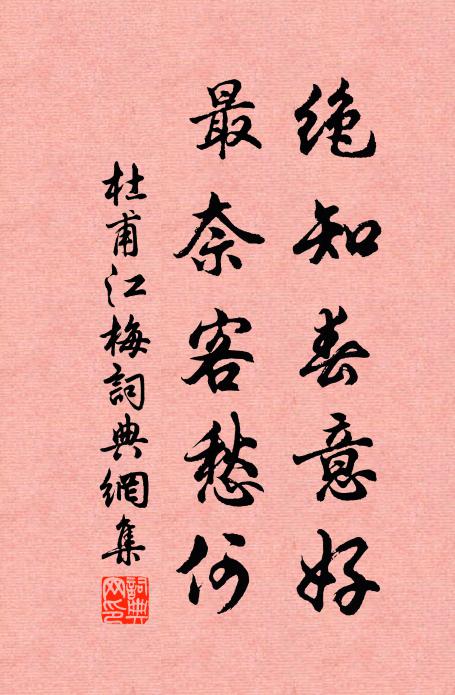 絶知春意好
最奈客愁何
杜甫江梅詞典網集
詞典網印